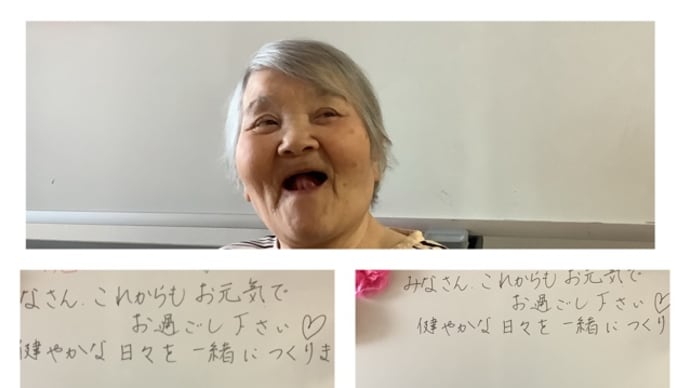 なさん、これからも お元気で
お過ごし下さい♡
健やかな日々を一緒につくりま
みなさん、これからも お元気で
お過ごし下さい♡
健やかな日々を一緒につくり